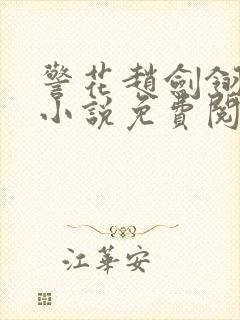 警花趙劍釵
小說免費閱
江華安